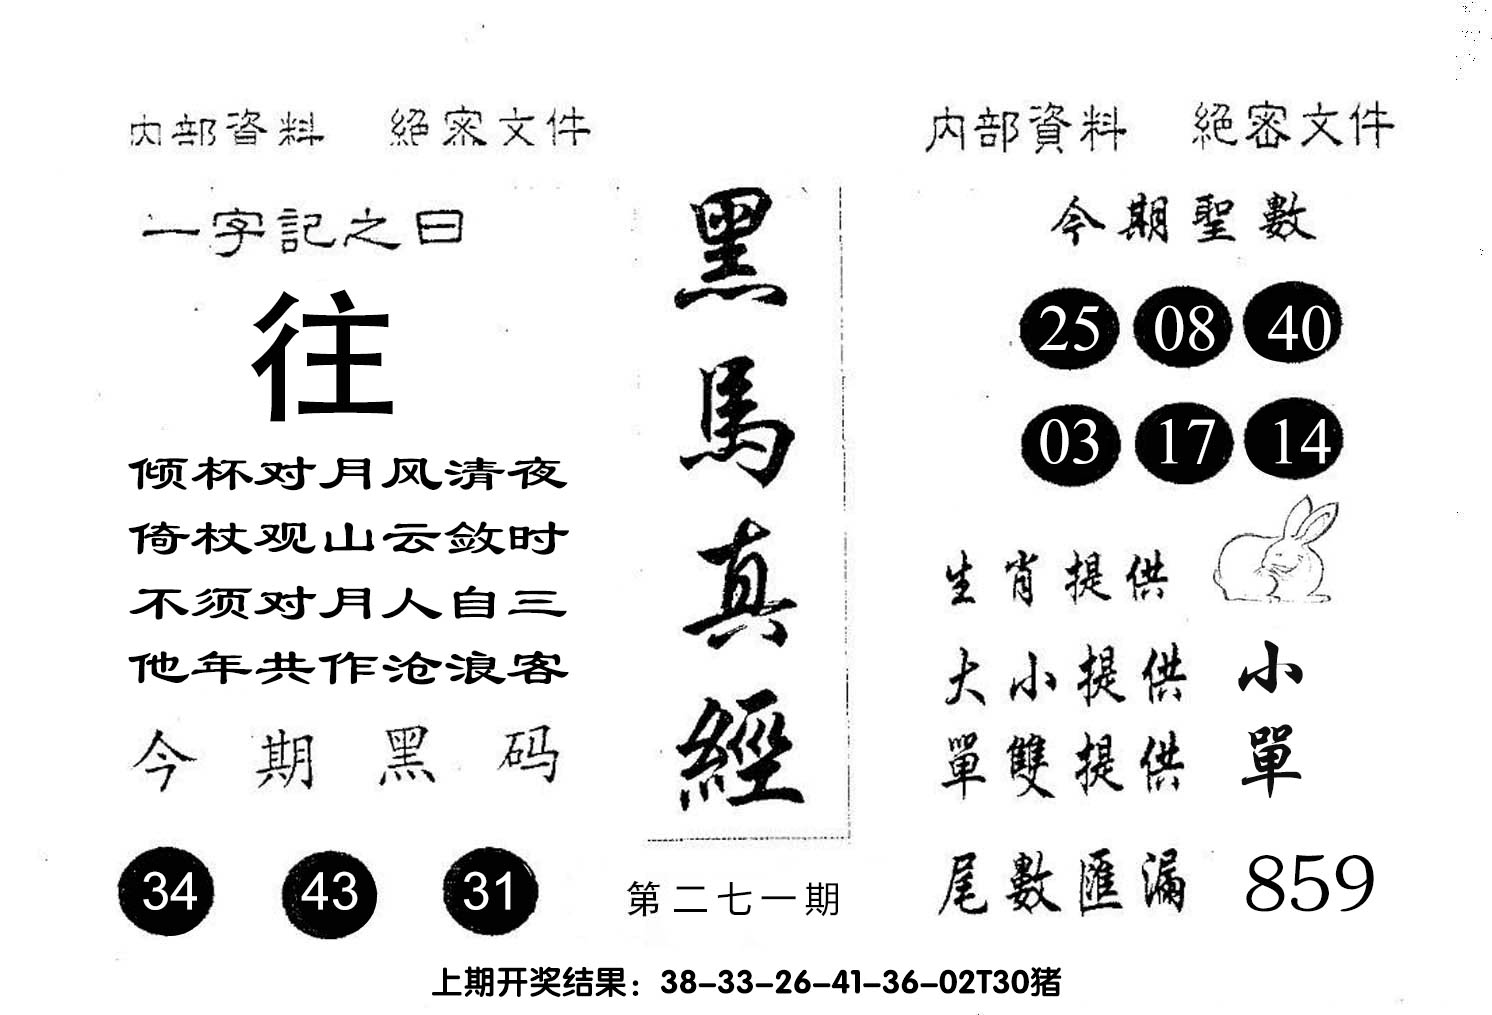 内部資料 絕密文件
一字記之曰
往
倾杯对月风清夜
倚杖观山云敛时
不须对月人自三
他年共作沧浪客
今期黑码
34 43 31
黑馬真經
第二七一期
内部資料 絕密文件
今期聖數
25 08 40
03 17 14
生肖提供
大小提供 小
單雙提供 單
尾數匯漏 859
上期开奖结果：38-33-26-41-36-02T30猪